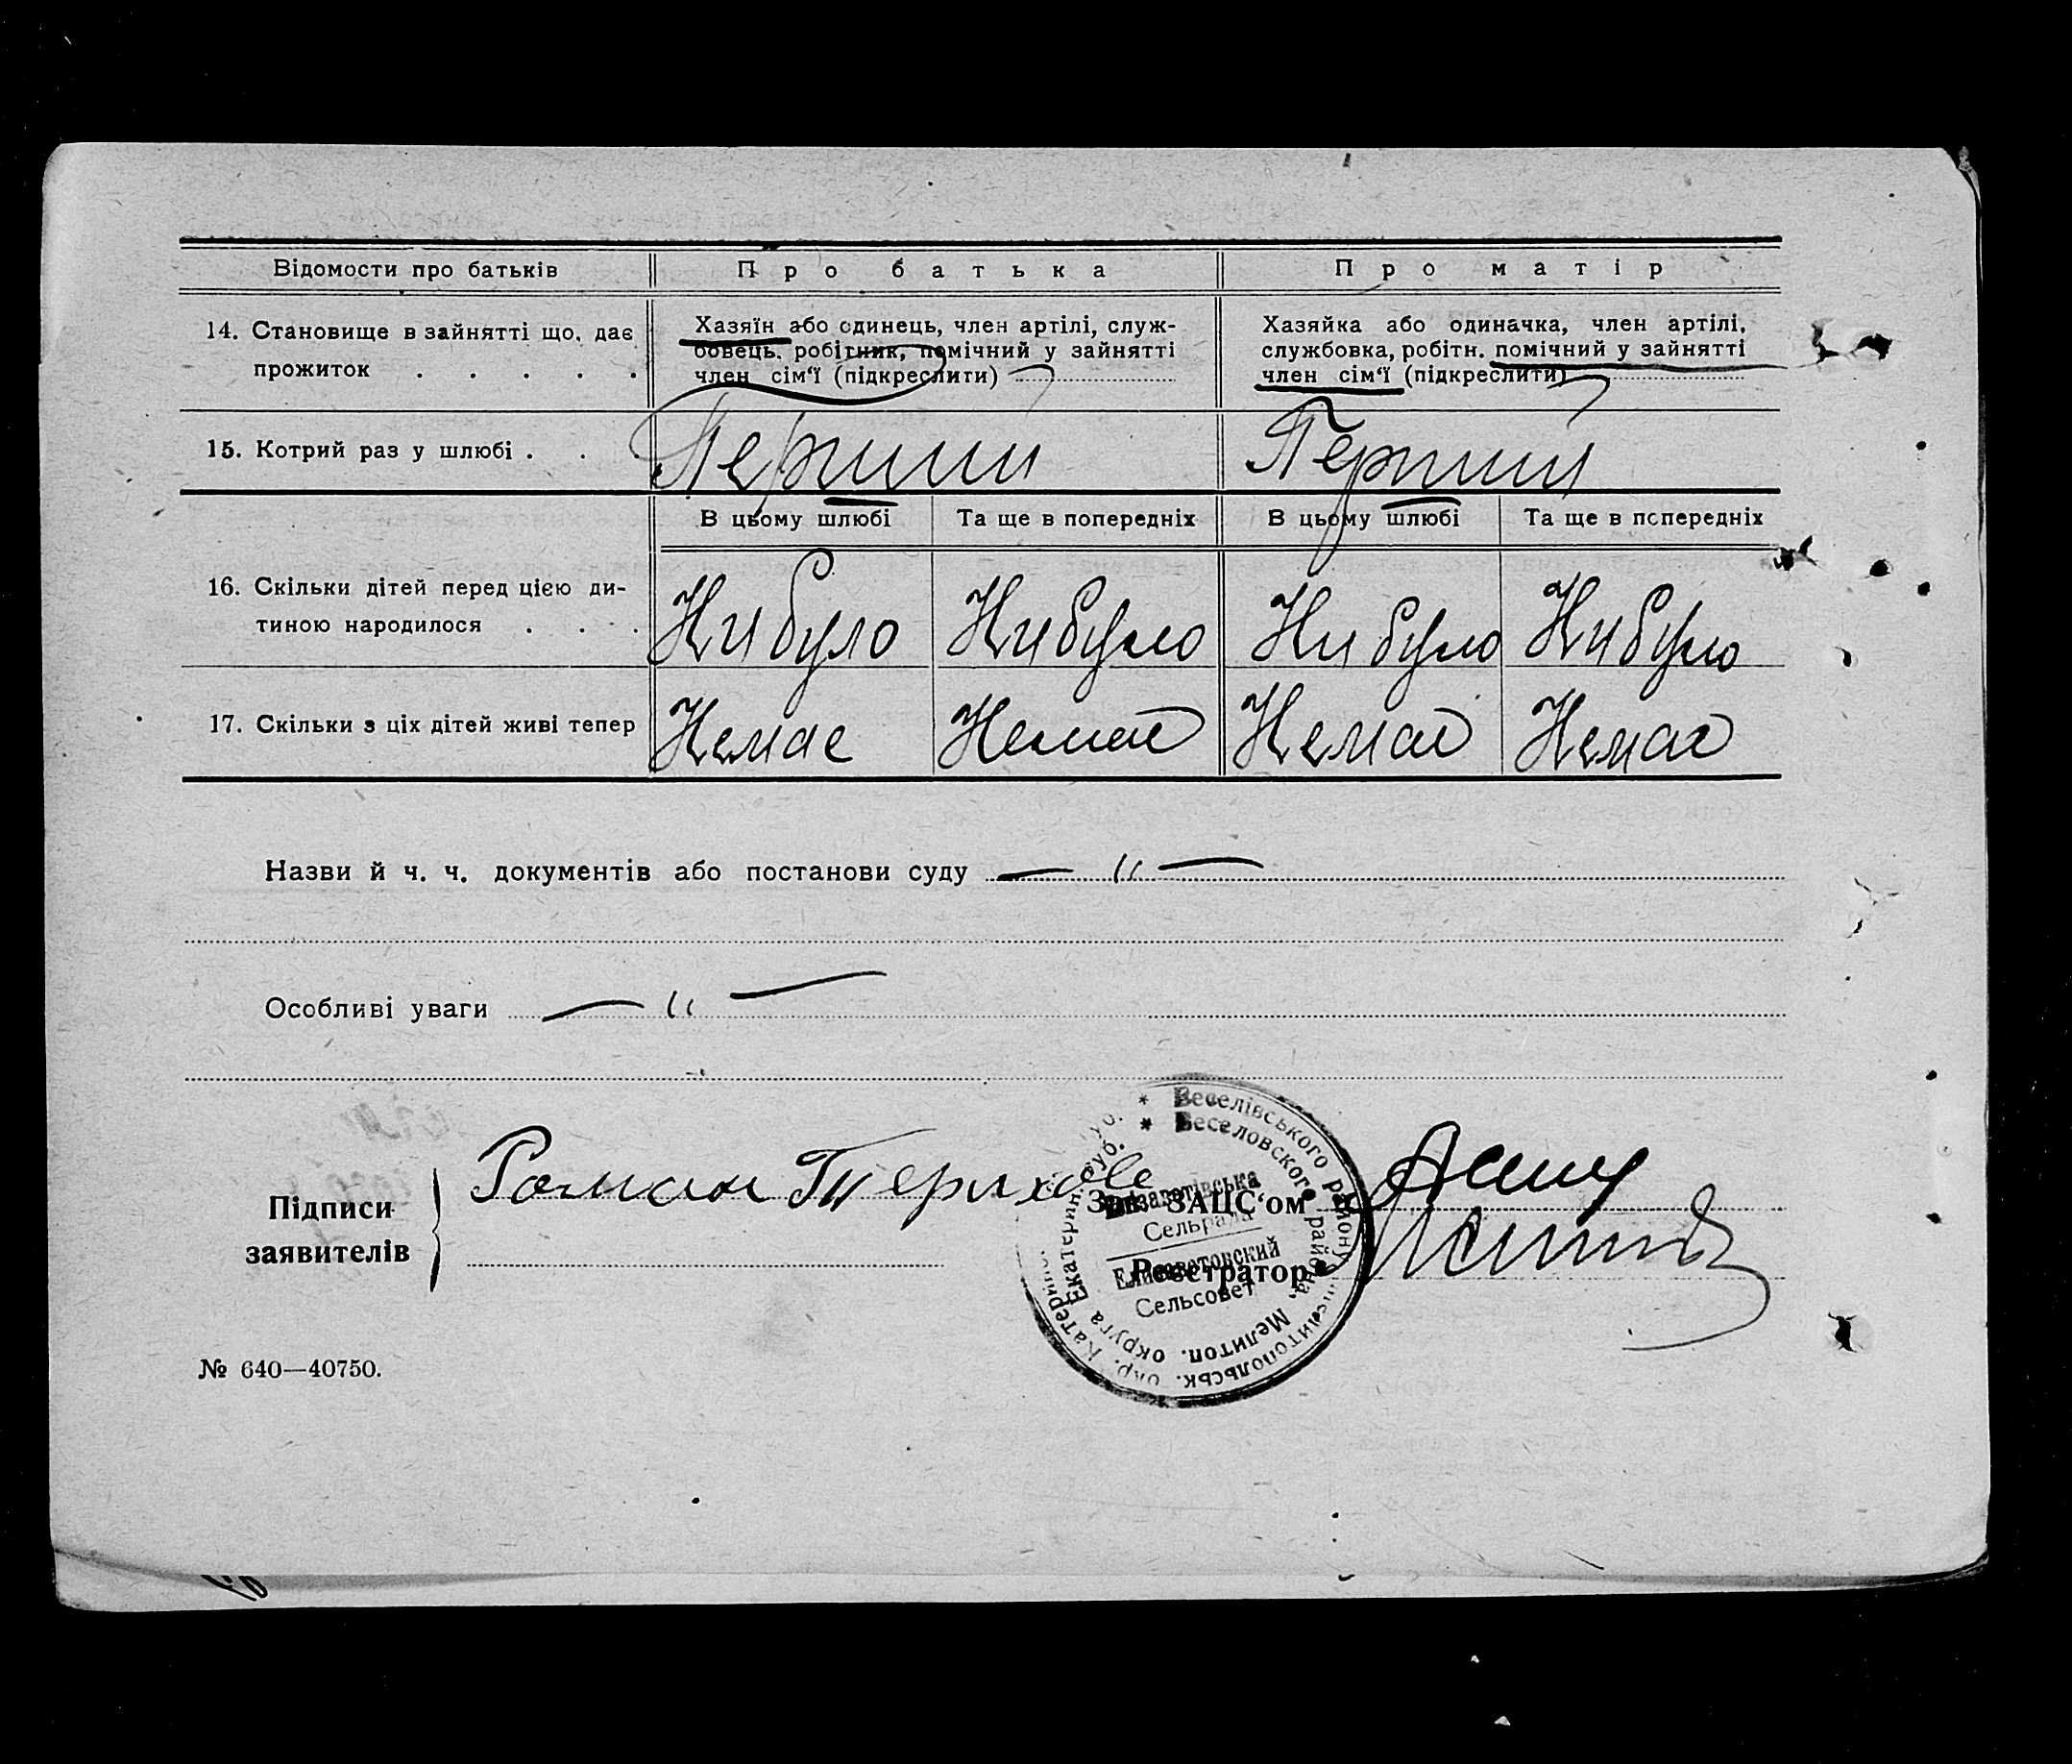 Відомости про батьків Про батька Про матір
14. Становище в зайнятті що, дає прожиток . . . . .
Хазяїн або одинець, член артілі, служ-
бовець, робітник, помічний у зайнятті
член сім‘ї (підкреслити)
Хазяйка або одиначка, член артілі,
службовка, робітн. помічний у зайнятті
член сім‘ї (підкреслити)
15. Котрий раз у шлюбі . . . Перший Перший
В цьому шлюбі Та ще в попередніх В цьому шлюбі Та ще в попередніх
16. Скільки дітей перед цією ди-
тиною народилося . . . .
Нибуло Нибуло Нибуло Нибуло
17. Скільки з ціх дітей живі тепер Немає Немає Немає Немає
Назви й ч. ч. документів або постанови суду — " —
Особливі уваги — " —
Підписи
заявителів
Роман
Зав. ЗАЦС‘ом
Реєстратор
* Веселівського району Мелитопольськ. окр. Катерин. губ.
* Веселовского района, Мелитоп. округа Екатерин. губ.
Єлизаветівська
Сельрада
Елисаветовский
Сельсовет
№ 640—40750.